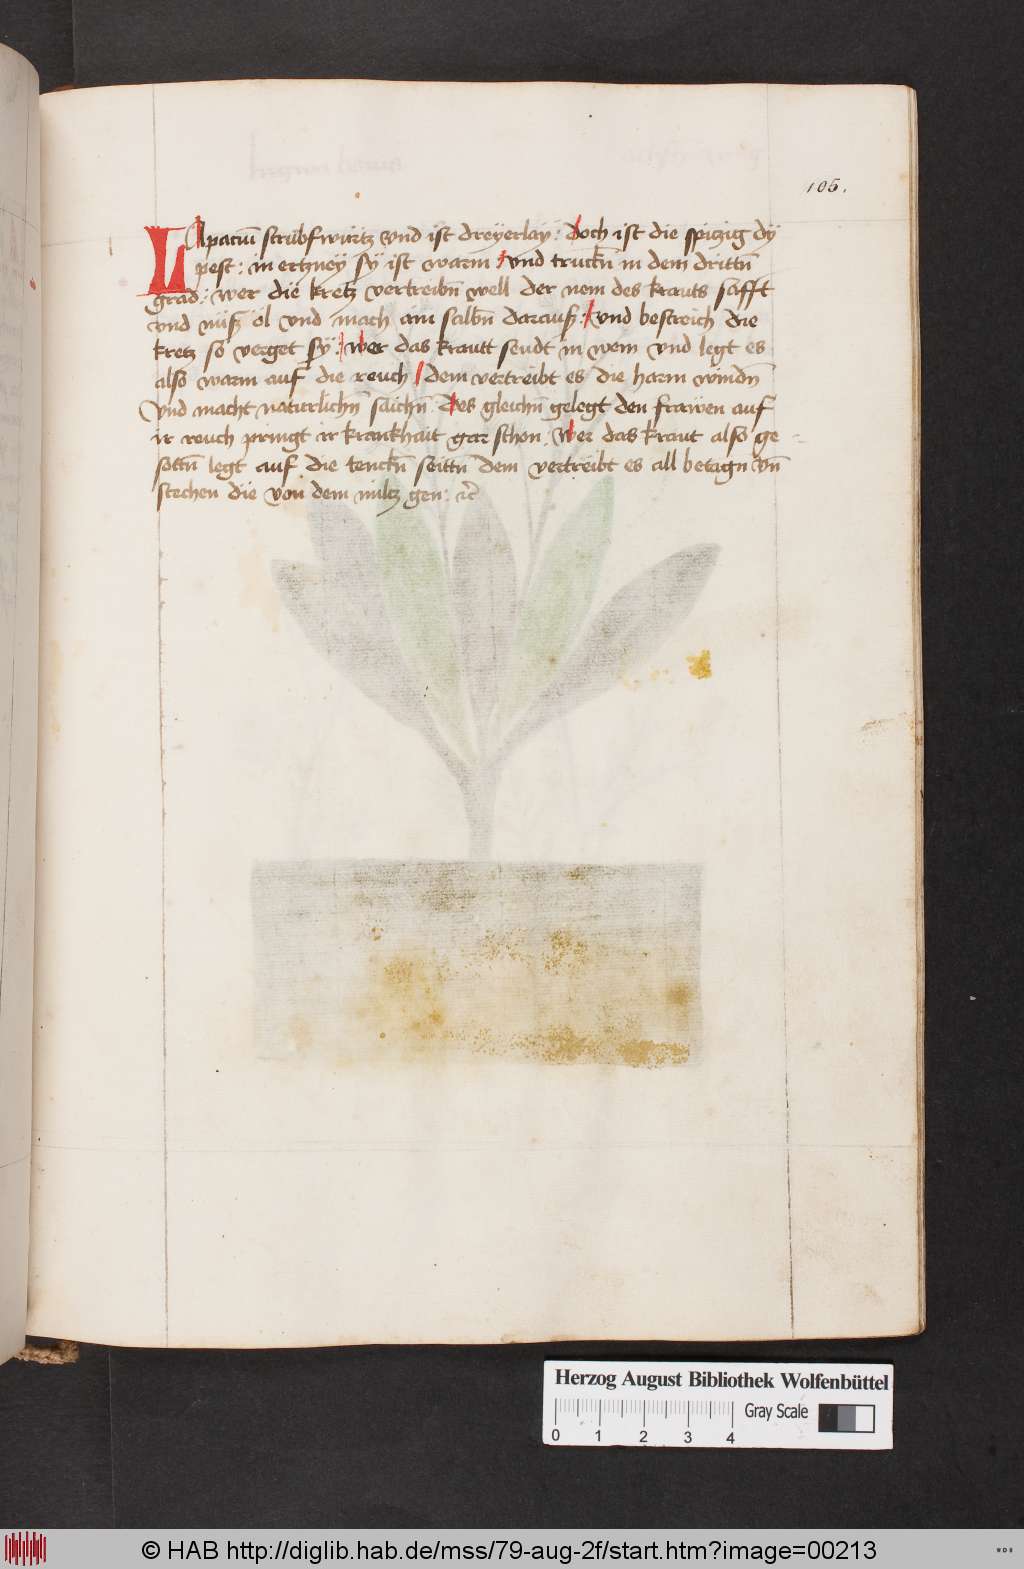 105.
LApaciu͞ strubfwurtz vnd ist dreyerlay : doch ist die spitzig dÿ
pest : in ertzneÿ sÿ ist warm / vnd truckn̄ in dem drittn̄
grad : wer die kretz vertreibn̄ well der nem des krauts safft
vnd nuſz ol vnd mach ain salbn̄ darauſz : / vnd bestreich die
kretz so verget sÿ : / wer das krautt seudt in wein vnd legt es
also warm auf die reuch / dem vertreibt es die harm windn̄
vnd macht naturlichn̄ saichn̄ . des gleichn̄ gelegt den frawen auf
ir reuch pringt ir krankhait gar schon . Wer das kraut also ge
sottn̄ legt auf die tenckn̄ seittn̄ dem vertreibt es all betagn vn̄
stechen die von dem miltz gen : ⁊c̄
Herzog August Bibliothek Wolfenbüttel
Gray Scale
0 1 2 3 4
© HAB http://diglib.hab.de/mss/79-aug-2f/start.htm?image=00213